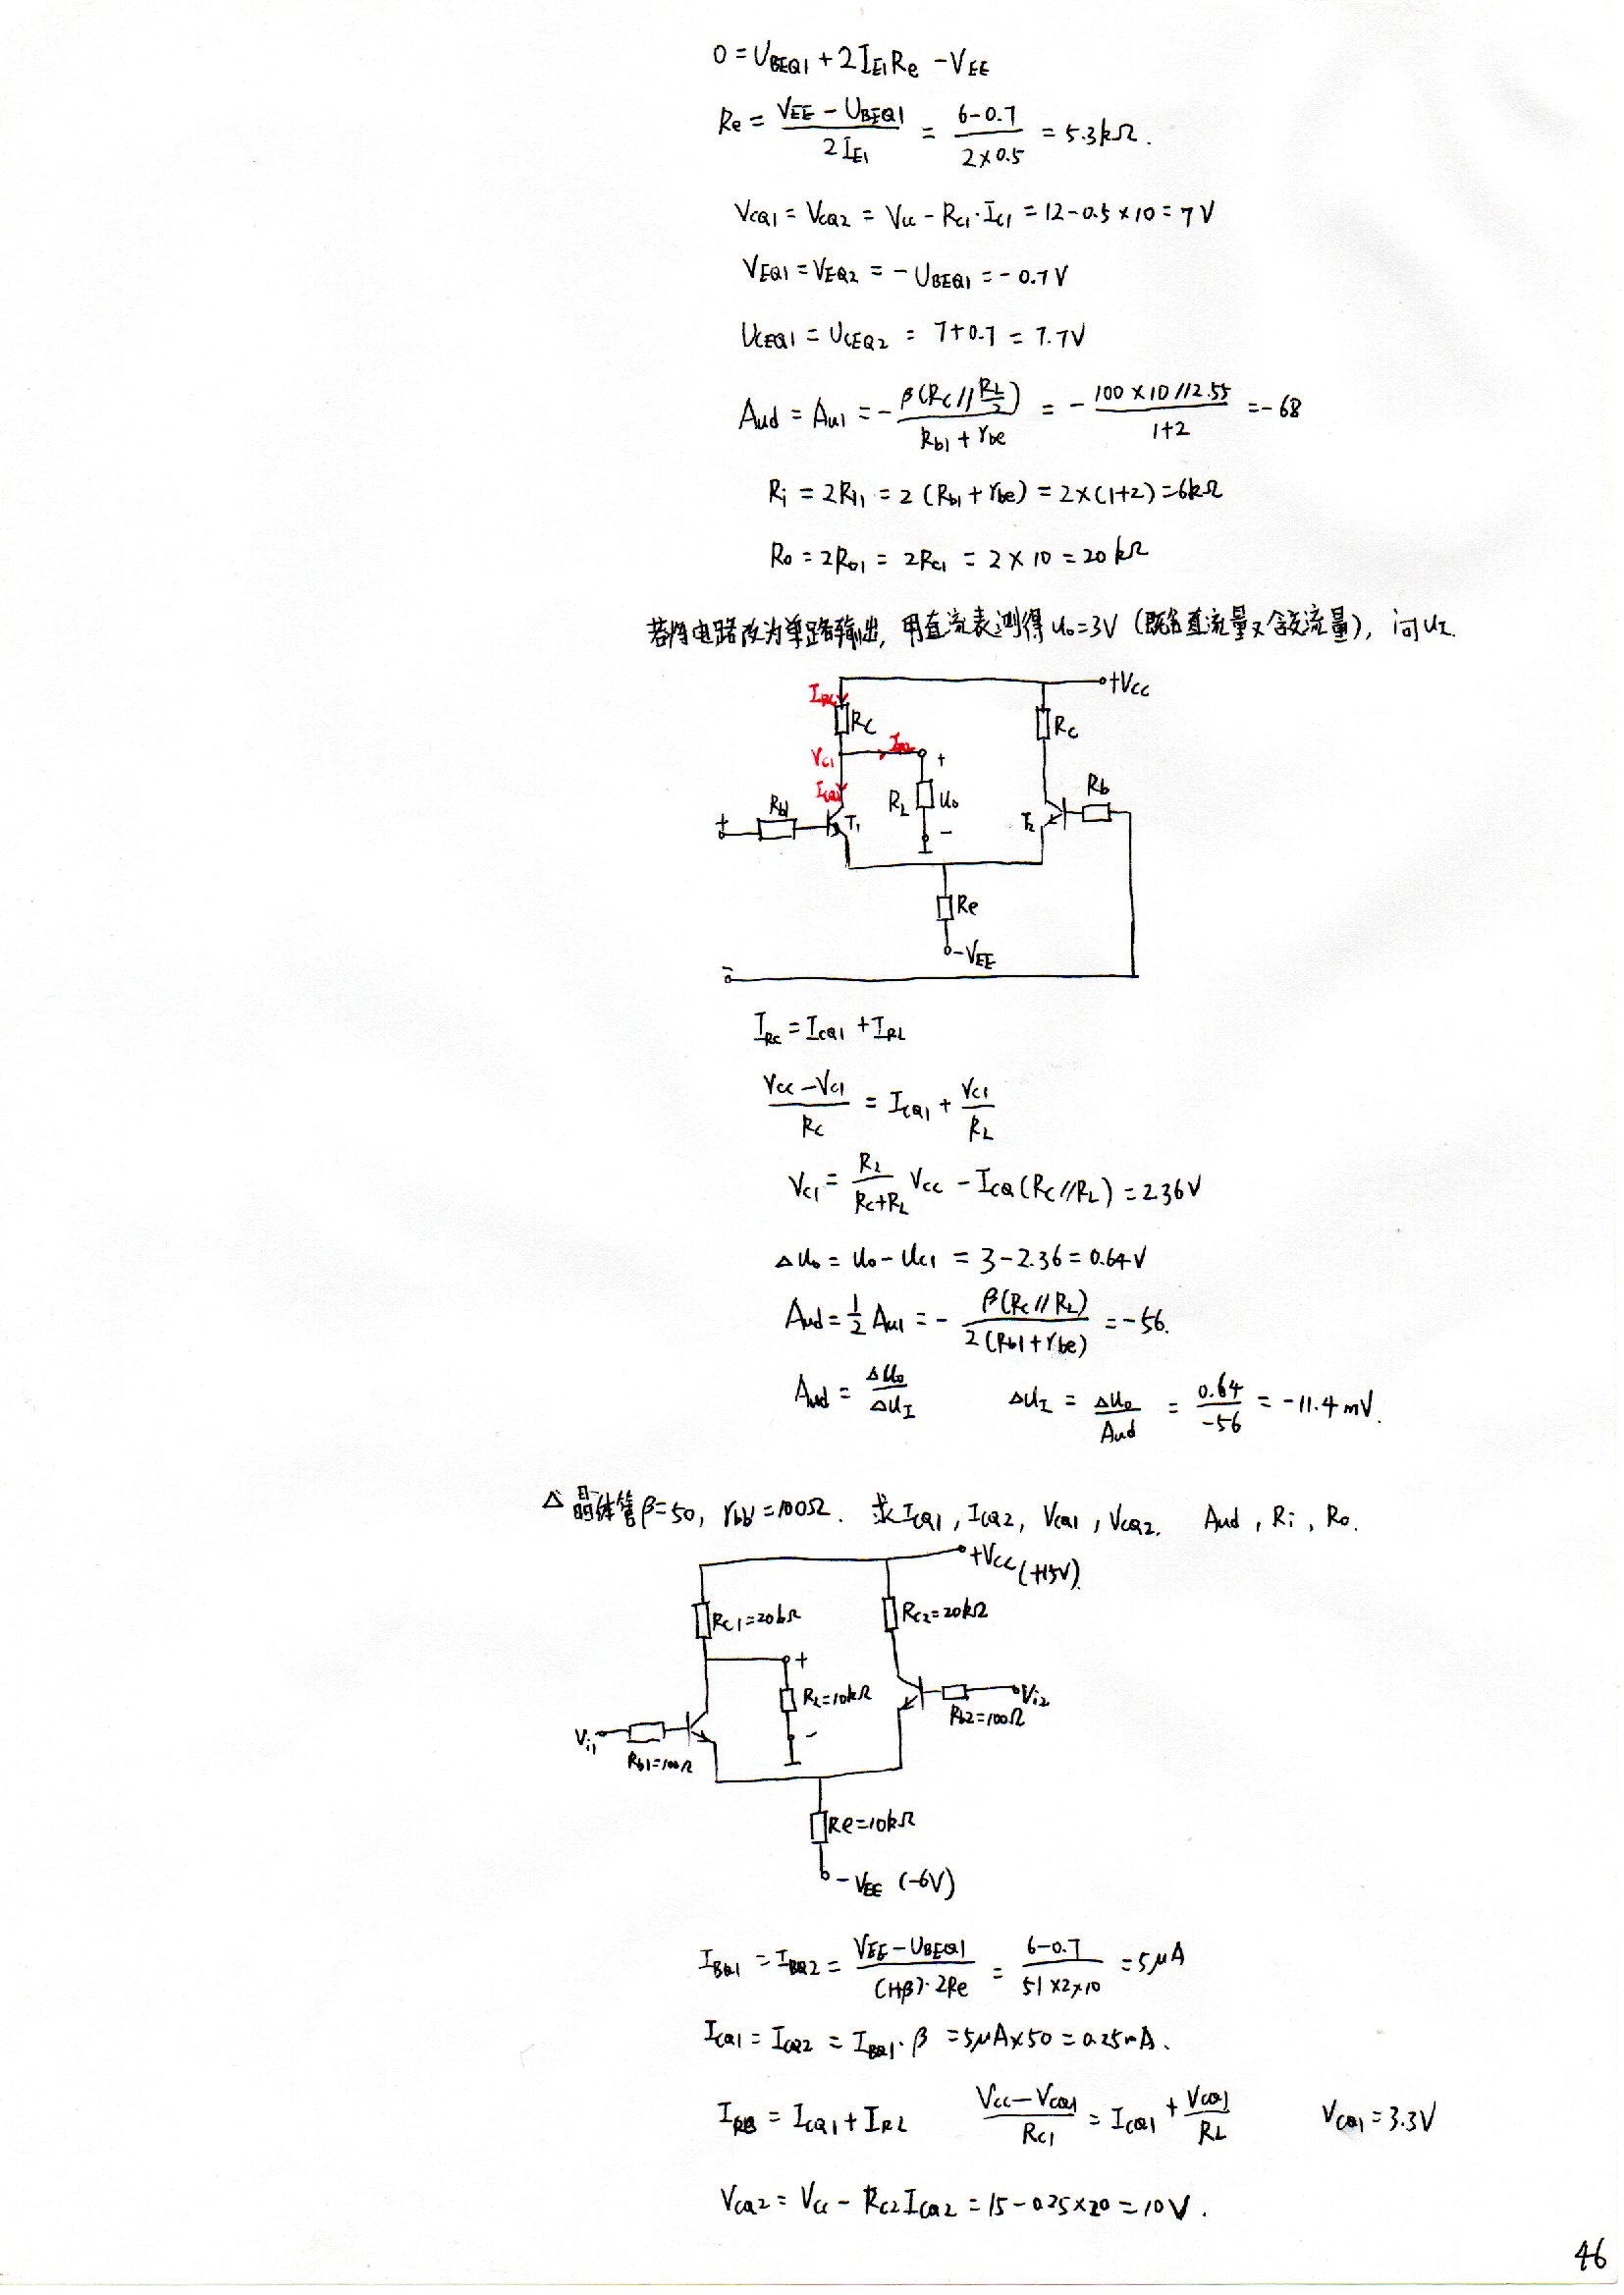 0 = U_BEQ1 + 2I_E1Re - V_EE
Re = (V_EE - U_BEQ1)/(2I_E1) = (6-0.7)/(2×0.5) = 5.3kΩ.
V_CQ1 = V_CQ2 = Vcc - Rc1·Ic1 = 12-0.5×10 = 7V
V_EQ1 = V_EQ2 = -U_BEQ1 = -0.7V
U_CEQ1 = U_CEQ2 = 7+0.7 = 7.7V
Aud = Au1 = -β(Rc//(RL/2))/(Rb1+rbe) = -(100×10//2.55)/(1+2) = -68
Ri = 2Ri1 = 2(Rb1+rbe) = 2×(1+2) = 6kΩ
Ro = 2Ro1 = 2Rc1 = 2×10 = 20kΩ
若将电路改为单路输出, 用直流表测得 uo=3V (既含直流量又含交流量), 问 uI.
+Vcc
I_RC
Rc
Rc
Vc1
I_RL
+
I_CQ1
RL
uo
Rb
Rb1
+
T1
T2
-
Re
-V_EE
-
I_RC = I_CQ1 + I_RL
(Vcc - Vc1)/Rc = I_CQ1 + Vc1/RL
Vc1 = RL/(Rc+RL) Vcc - I_CQ(Rc//RL) = 2.36V
△uo = uo - uc1 = 3-2.36 = 0.64V
Aud = 1/2 Au1 = -β(Rc//RL)/(2(Rb1+rbe)) = -56.
Aud = △uo/△uI △uI = △uo/Aud = 0.64/-56 = -11.4mV.
△ 晶体管β=50, rbb'=100Ω. 求I_CQ1, I_CQ2, V_CQ1, V_CQ2. Aud, Ri, Ro.
+Vcc (+15V)
Rc1=20kΩ
Rc2=20kΩ
+
RL=10kΩ
Vi2
Rb2=100Ω
Vi1
-
Rb1=100Ω
Re=10kΩ
-V_EE (-6V)
I_BQ1 = I_BQ2 = (V_EE - U_BEQ1)/((1+β)·2Re) = (6-0.7)/(51×2×10) = 5μA
I_CQ1 = I_CQ2 = I_BQ1·β = 5μA×50 = 0.25mA.
= I_CQ1 + I_RL (Vcc - V_CQ1)/Rc1 = I_CQ1 + V_CQ1/RL V_CQ1 = 3.3V
V_CQ2 = Vcc - Rc2I_CQ2 = 15-0.25×20 = 10V.
46